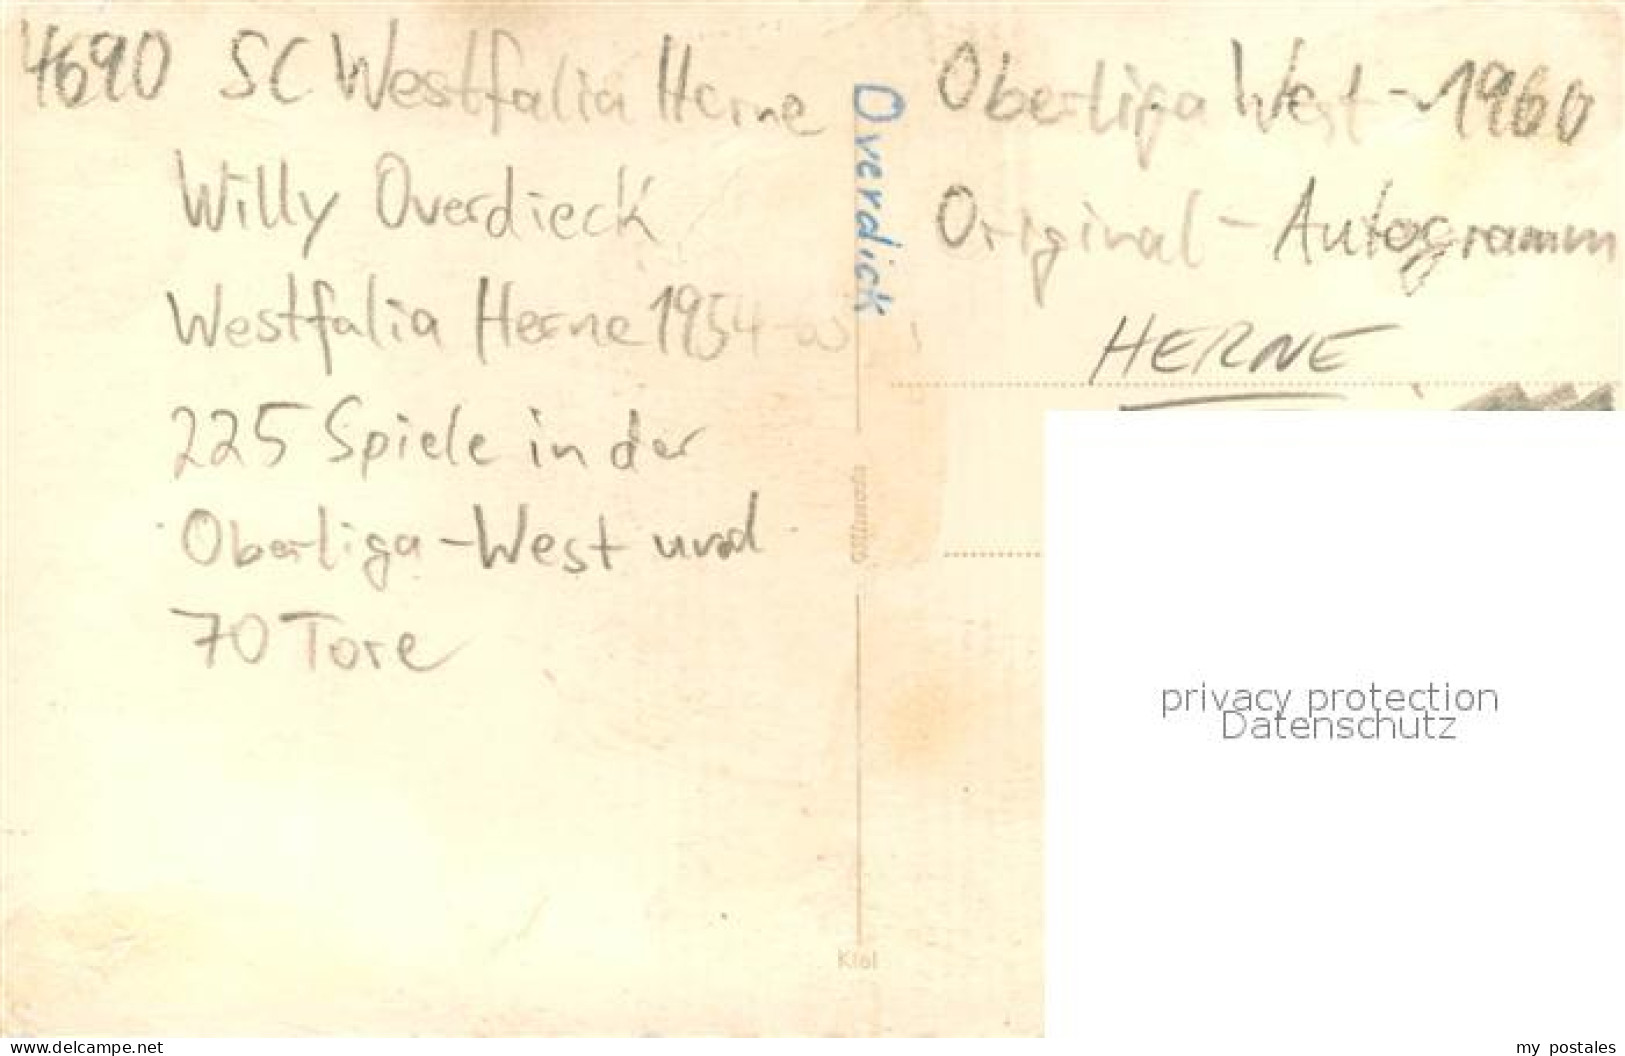 4690 SC Westfalia Herne
Willy Overdieck
Westfalia Herne 1954-63
225 Spiele in der
Oberliga-West und
70 Tore
Overdick
Oberliga West - 1960
Original - Autogramm
HERNE
Kiel
privacy protection
Datenschutz
www.delcampe.net
my postales